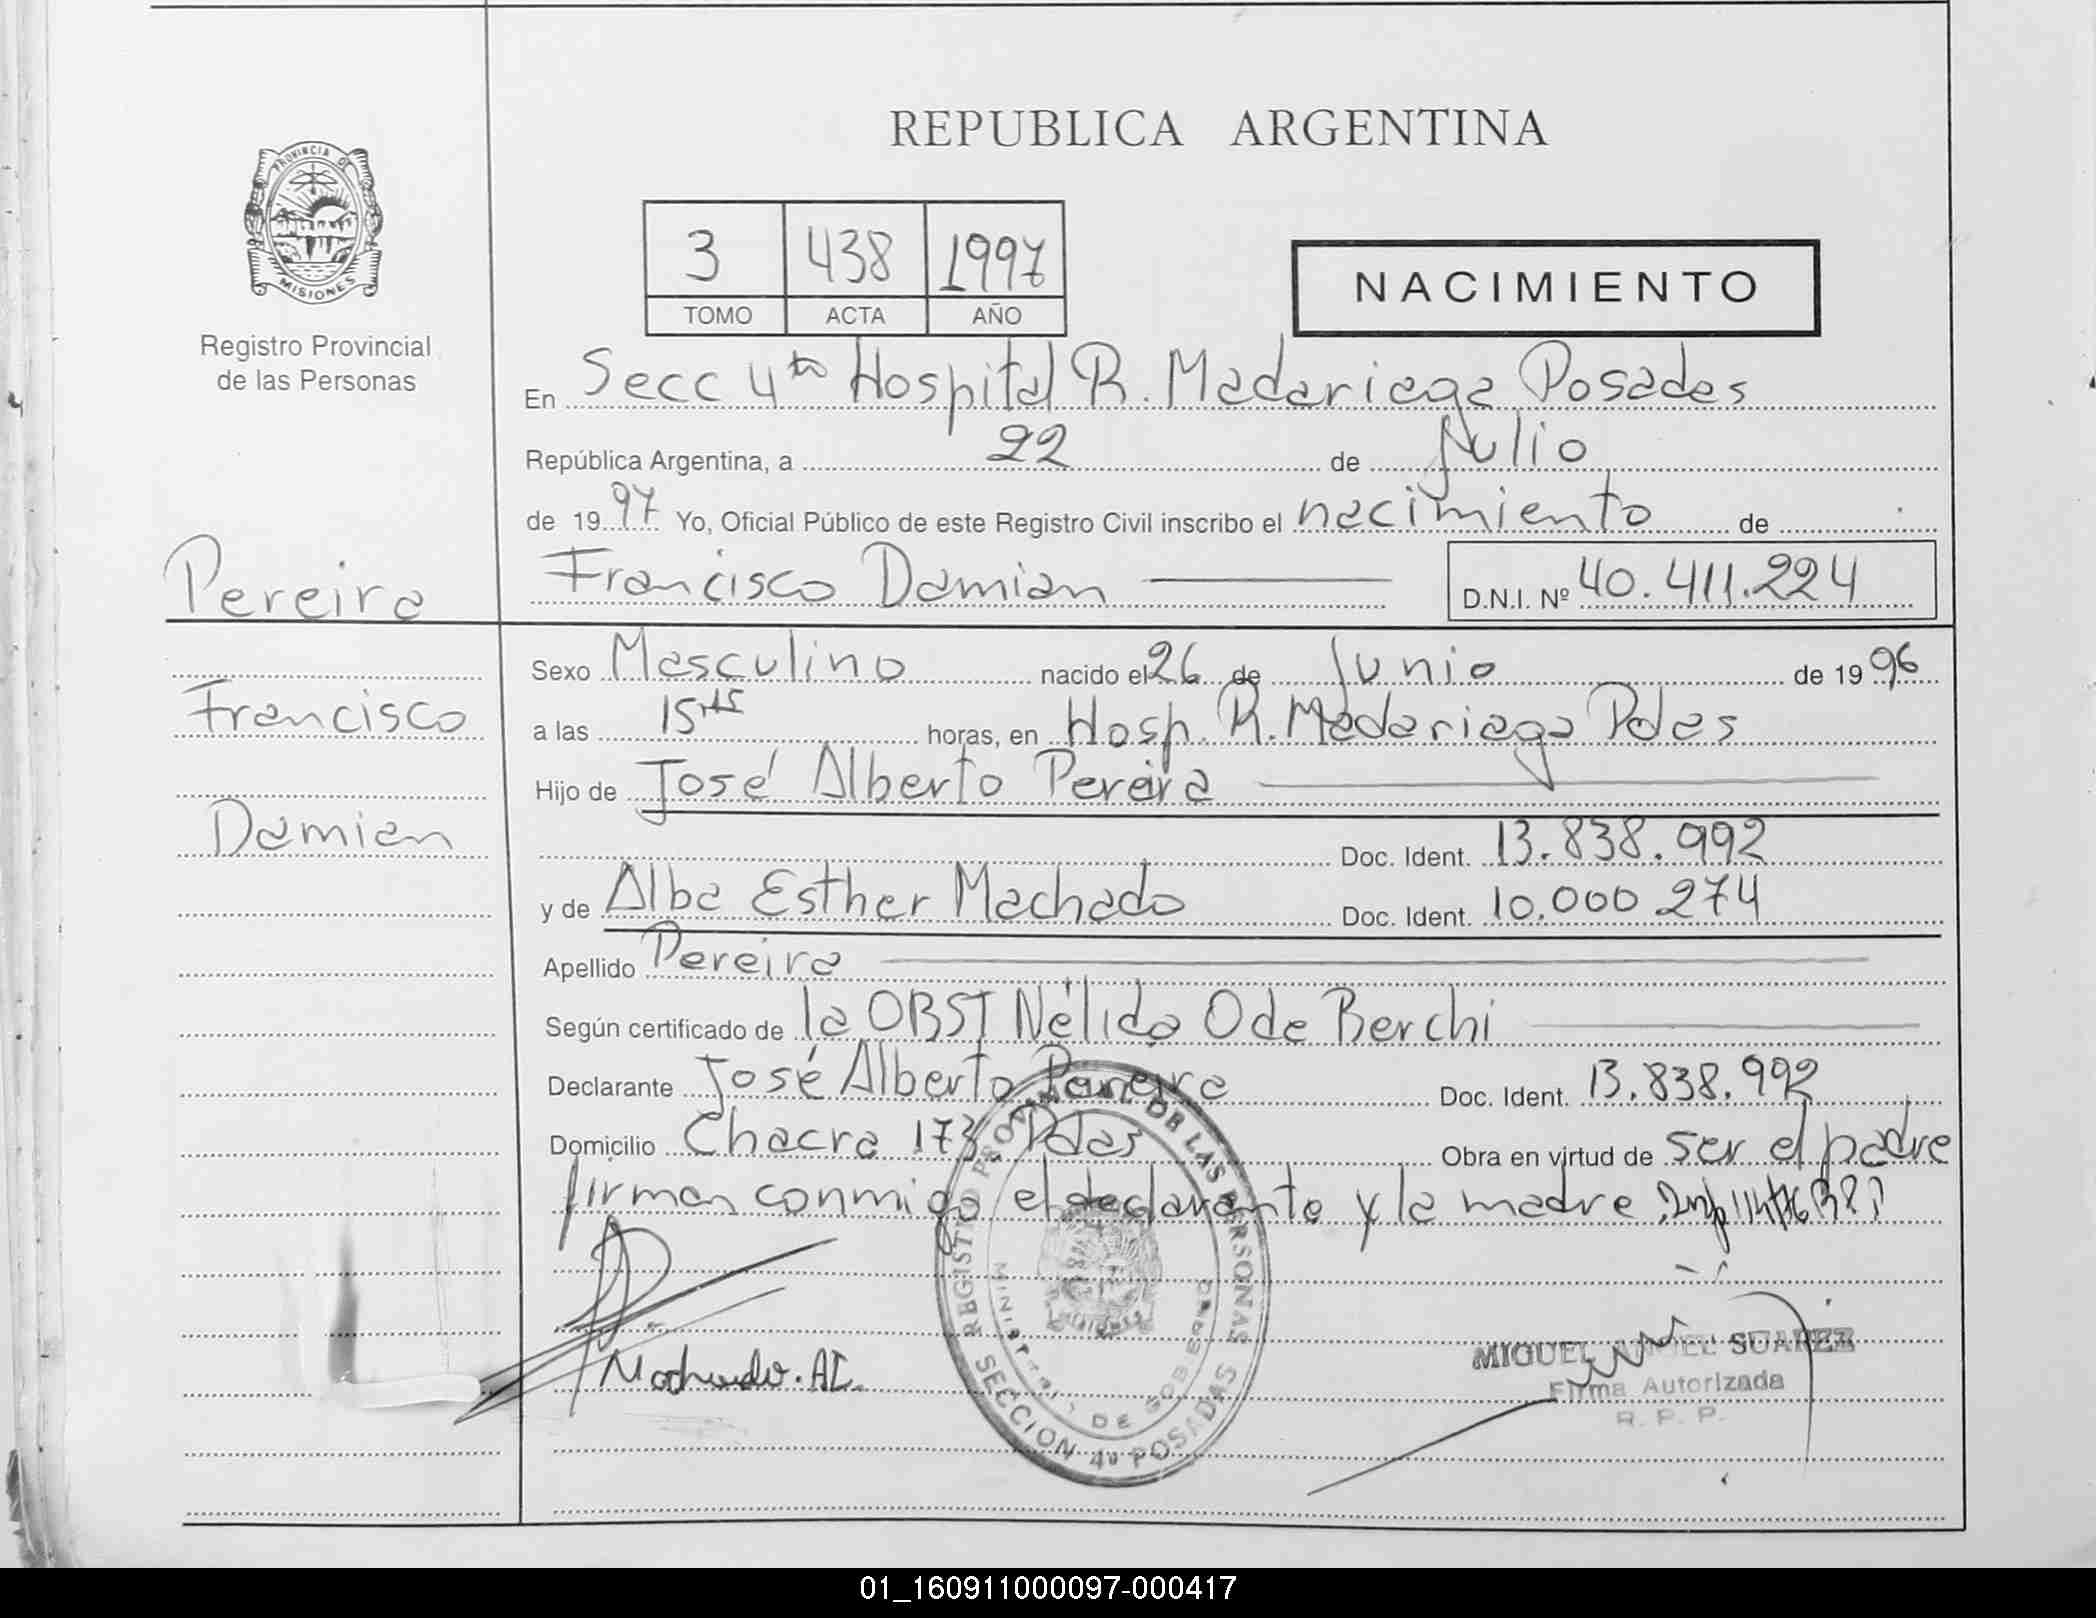 REPUBLICA ARGENTINA
PROVINCIA DE
MISIONES
Registro Provincial
de las Personas
3 438 1997
TOMO ACTA AÑO
NACIMIENTO
En Secc 4ta Hospital R. Madariaga Posadas
República Argentina, a 22 de Julio
de 1997 Yo, Oficial Público de este Registro Civil inscribo el nacimiento de
Pereira
Francisco Damian
D.N.I. Nº 40.411.224
Sexo Masculino nacido el 26 de Junio de 1996
Francisco
a las 15:15 horas, en Hosp. R. Madariaga Pdas
Hijo de José Alberto Pereira
Damian
Doc. Ident. 13.838.992
y de Alba Esther Machado Doc. Ident. 10.000 274
Apellido Pereira
Según certificado de la OBST Nélida Ode Berchi
Declarante José Alberto Pereira Doc. Ident. 13.838.992
Domicilio Chacra 173 Pdas Obra en virtud de ser el padre
firman conmigo el declarante y la madre
REGISTRO PROVINCIAL DE LAS PERSONAS
MINISTERIO DE GOBIERNO
SECCION 4a POSADAS
Machado. A E.
MIGUEL ANGEL SUAREZ
Firma Autorizada
R. P. P.
01_160911000097-000417